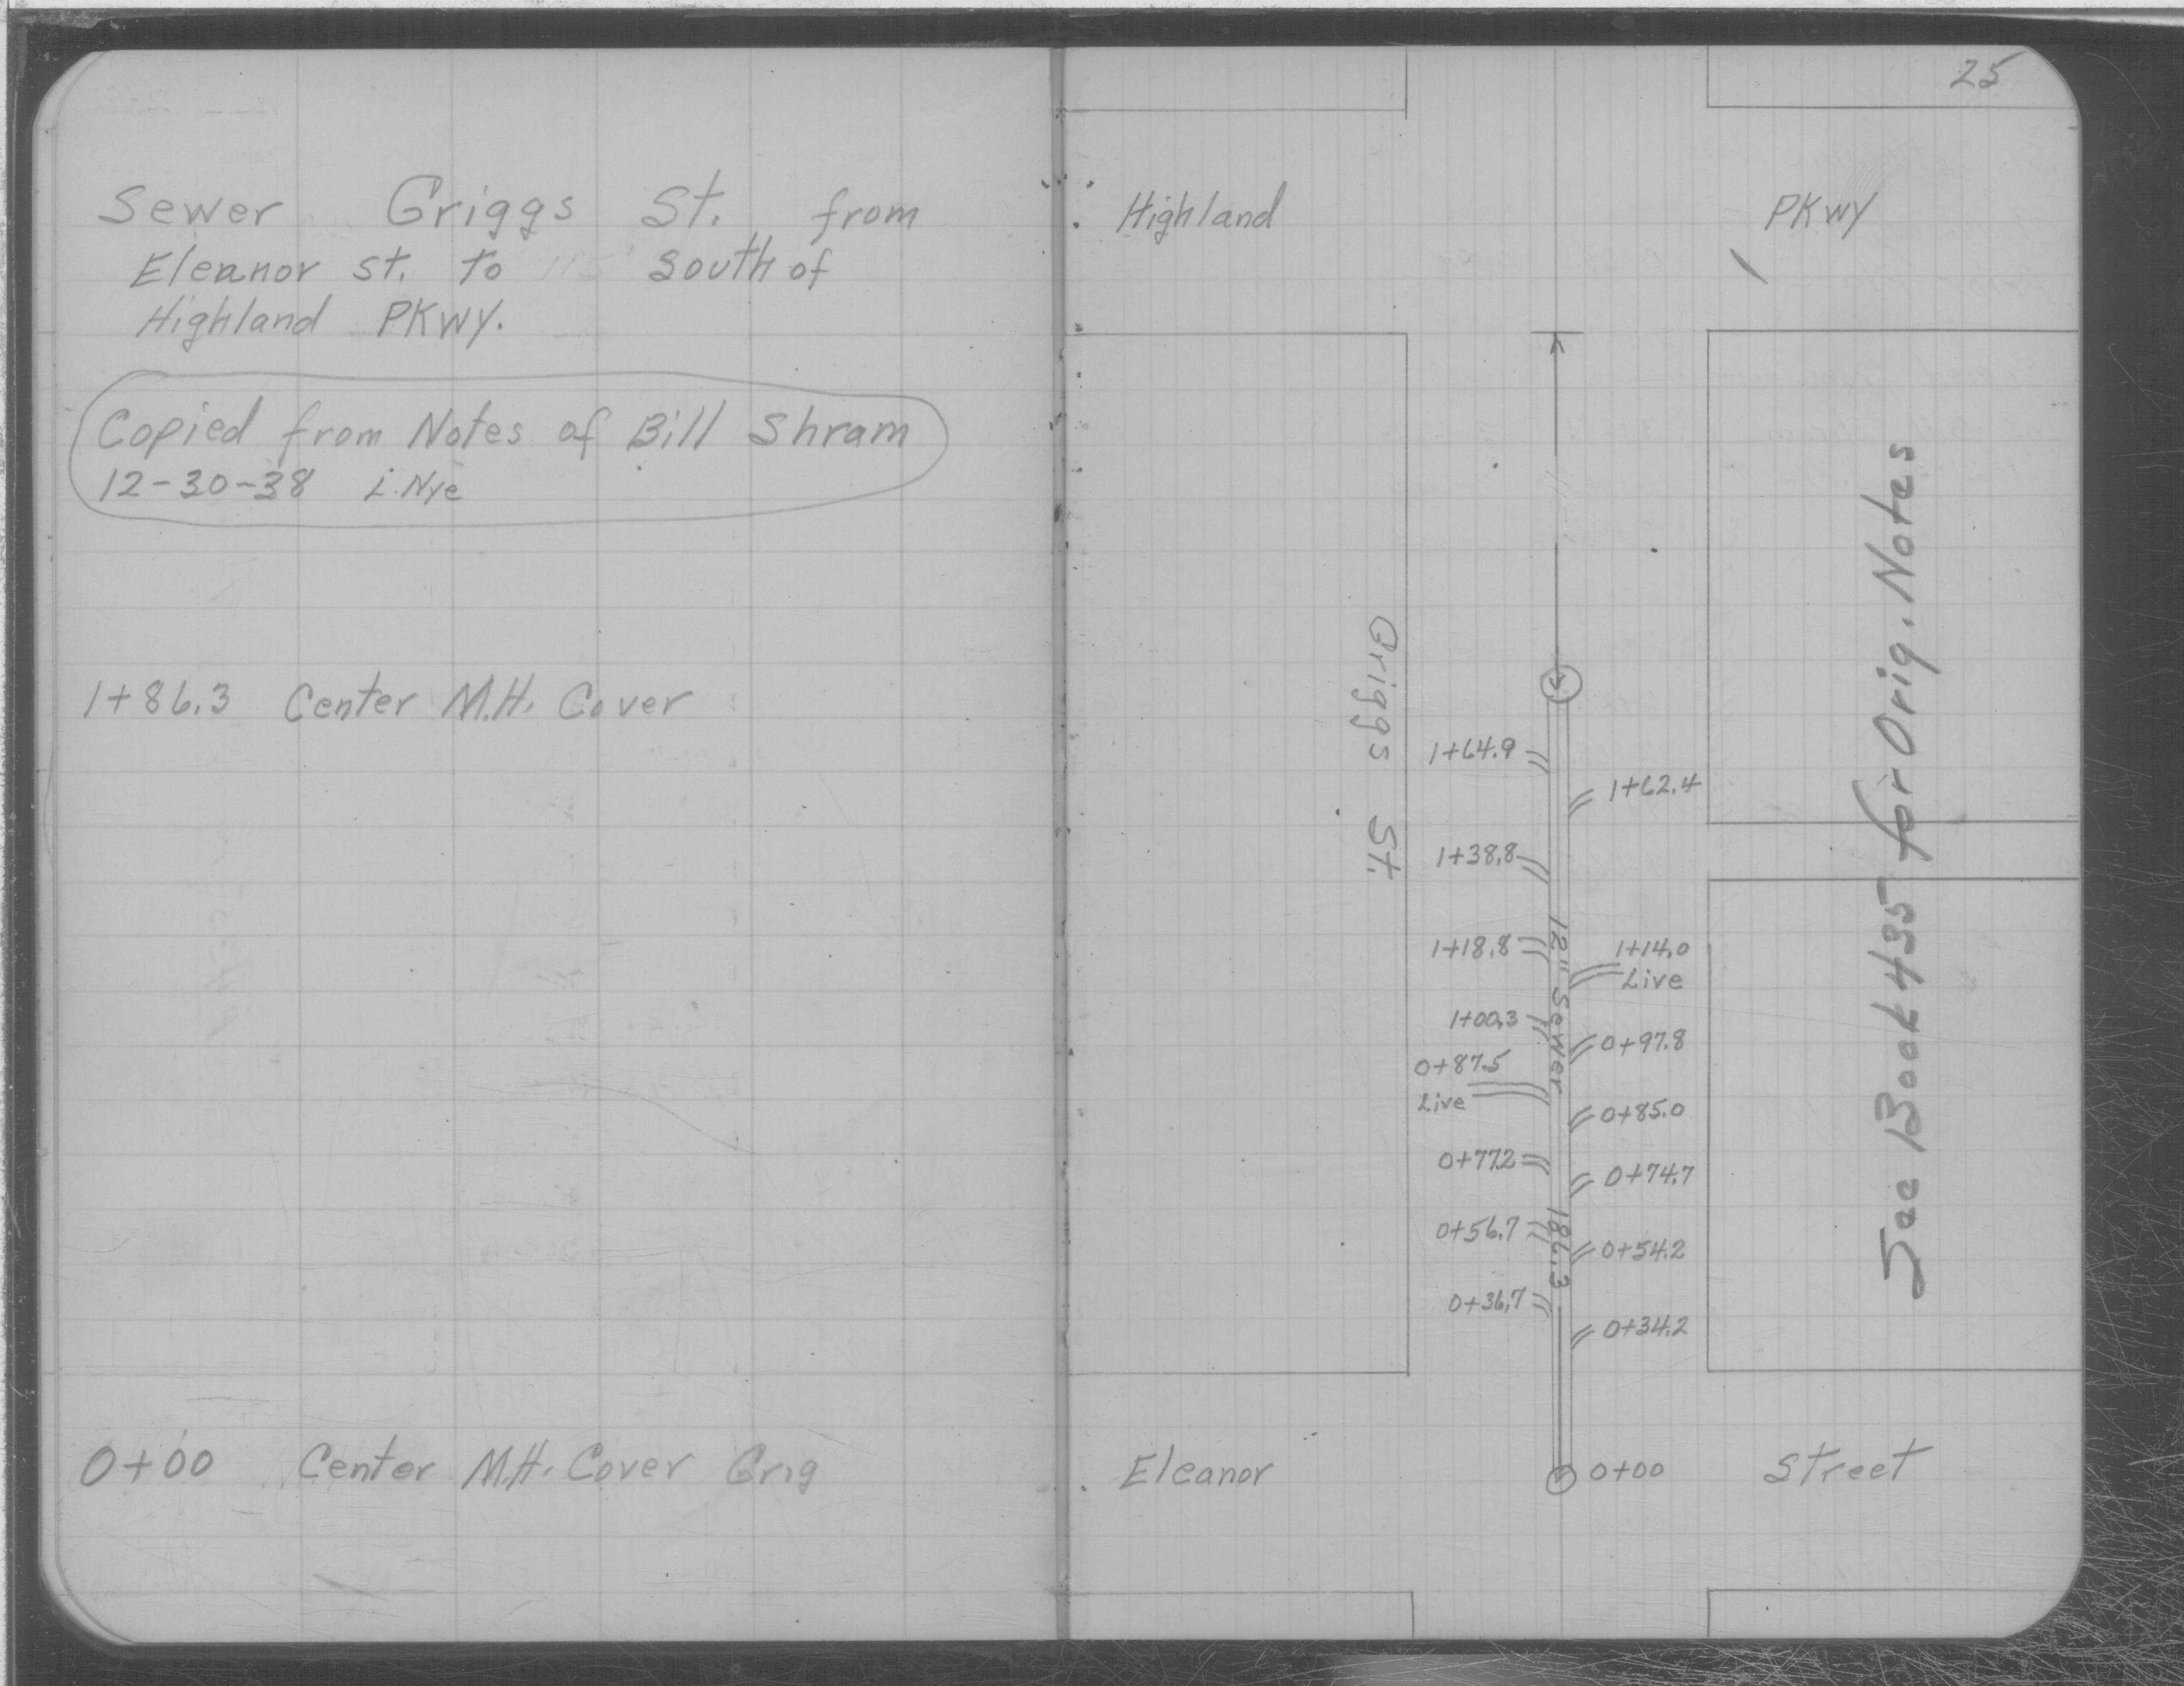 Sewer Griggs St. from
Eleanor st. to south of
Highland PKWY.
Copied from Notes of Bill Shram
12-30-38 i. Nye
1+86.3 Center M.H. Cover
0+00 Center M.H. Cover Grig
25
Highland PKWY
Griggs St.
1+64.9
1+62.4
1+38.8
1+18.8
1+14.0
Live
1+00.3
0+97.8
0+87.5
Live
0+85.0
0+77.2
0+74.7
0+56.7
0+54.2
0+36.7
0+34.2
12" Sewer 186.3
0+00
Eleanor Street
See Book 435 for Orig. Notes